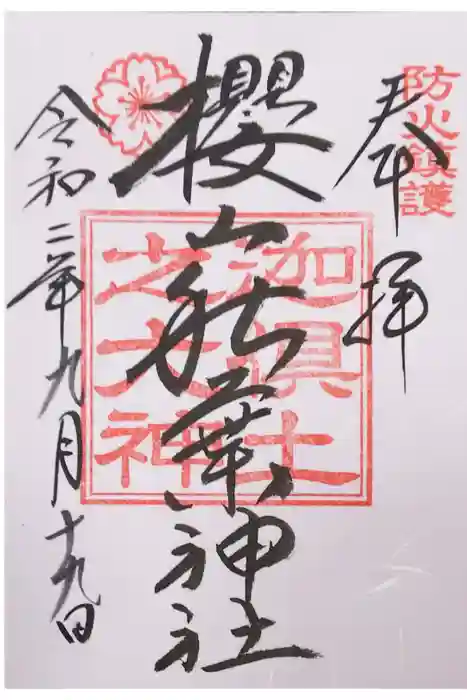 防火鎮護
奉拝
櫻山秋葉神社
迦倶土
之大神
令和二年九月十九日